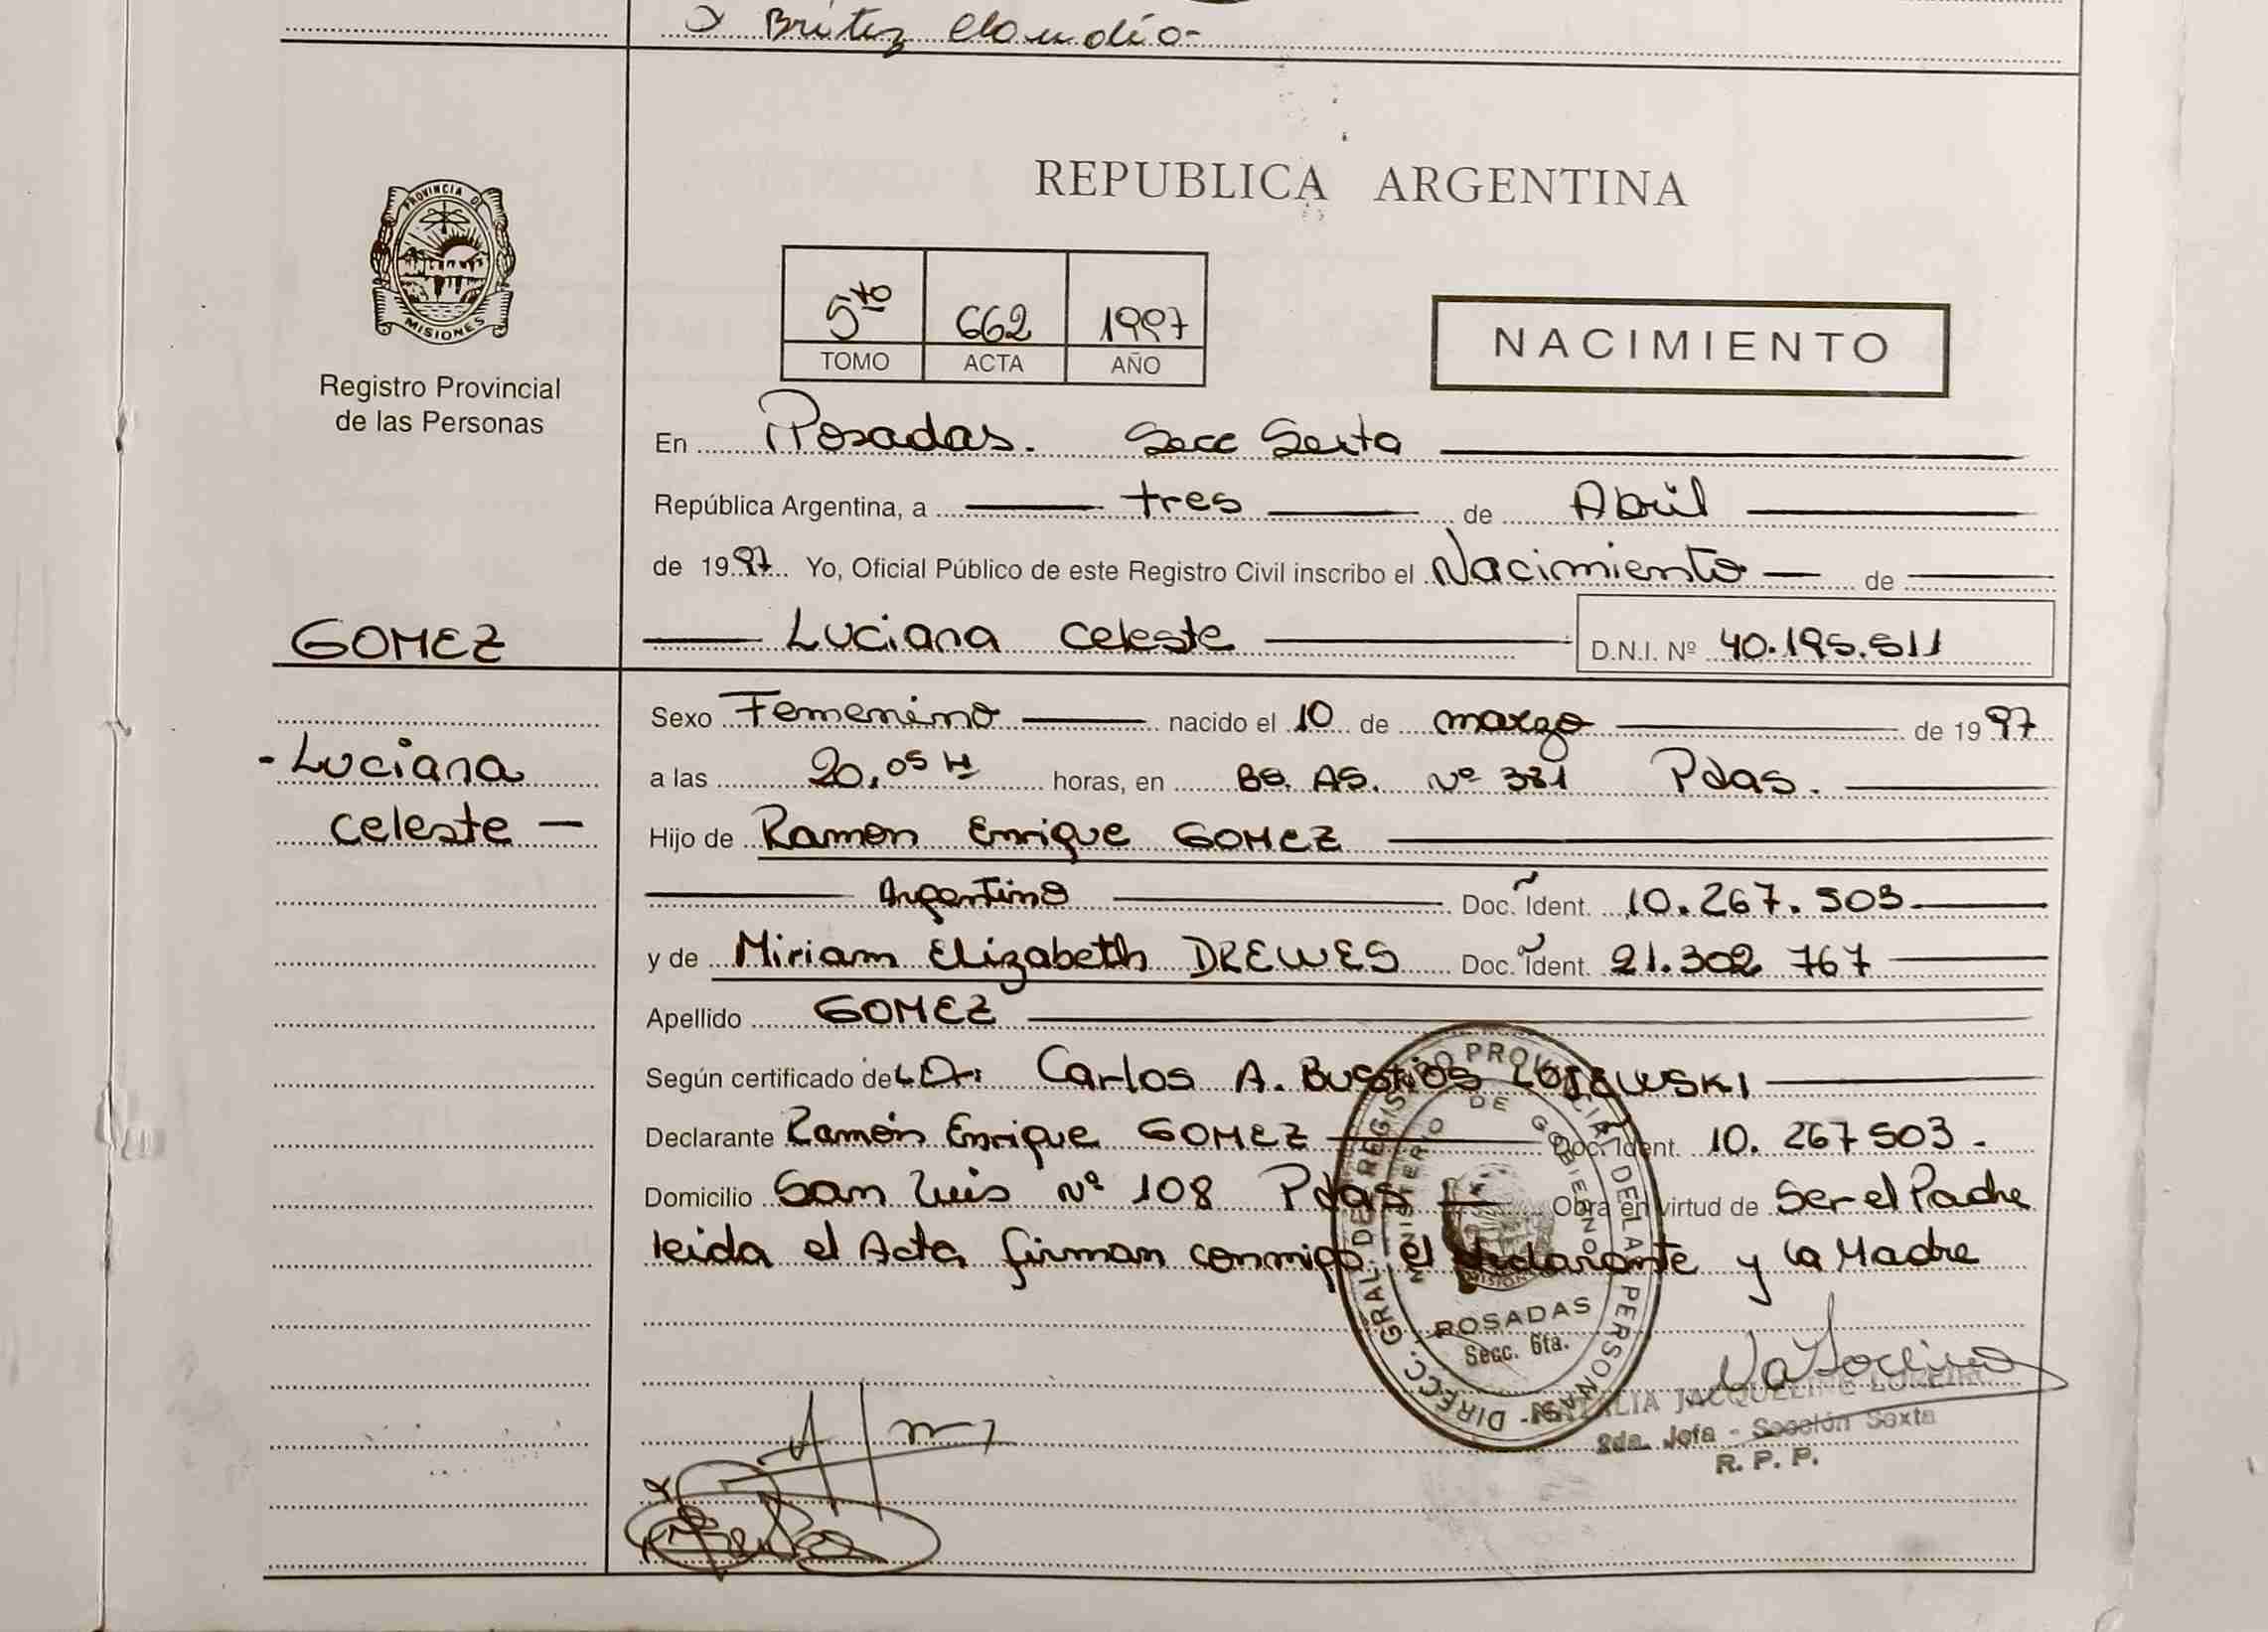 Britez Claudio-
PROVINCIA DE
MISIONES
Registro Provincial
de las Personas
REPUBLICA ARGENTINA
5to 662 1997
TOMO ACTA AÑO
NACIMIENTO
En Posadas. Secc Sexta
República Argentina, a tres de Abril
de 1997 Yo, Oficial Público de este Registro Civil inscribo el Nacimiento de
GOMEZ
Luciana Celeste D.N.I. Nº 40.195.511
Sexo Femenino nacido el 10 de marzo de 1997
- Luciana
celeste -
a las 20,05 H horas, en BS. AS. Nº 381 Pdas.
Hijo de Ramon Enrique GOMEZ
Argentino Doc. Ident. 10.267.503
y de Miriam Elizabeth DREWES Doc. Ident. 21.302 767
Apellido GOMEZ
Según certificado del Dr: Carlos A. BUSTIOS
Declarante Ramón Enrique GOMEZ Doc. Ident. 10. 267 503 -
Domicilio San Luis Nº 108 Pdas Obra en virtud de Ser el Padre
leida el Acta firman conmigo el declarante y la Madre
DIRECC. GRAL. DE REGISTRO PROVINCIAL DE LA PERSONAS-
MINISTERIO DE GOBIERNO
MISIONES
POSADAS
Secc. 6ta.
NATALIA JACQUELINE LOREIRO
2da. Jefa - Sección Sexta
R. P. P.